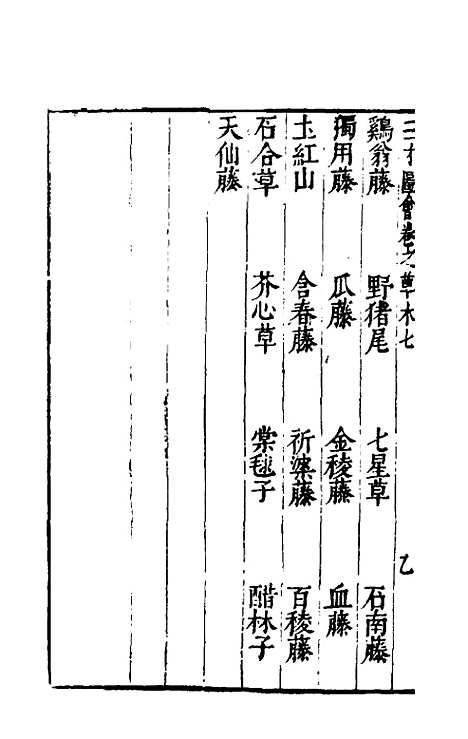 三才圖會卷之草木七 乙
鷄翁藤 野猪尾 七星草 石南藤
獨用藤 瓜藤 金稜藤 血藤
土紅山 含春藤 祈婆藤 百稜藤
石合草 芥心草 棠毬子 醋林子
天仙藤